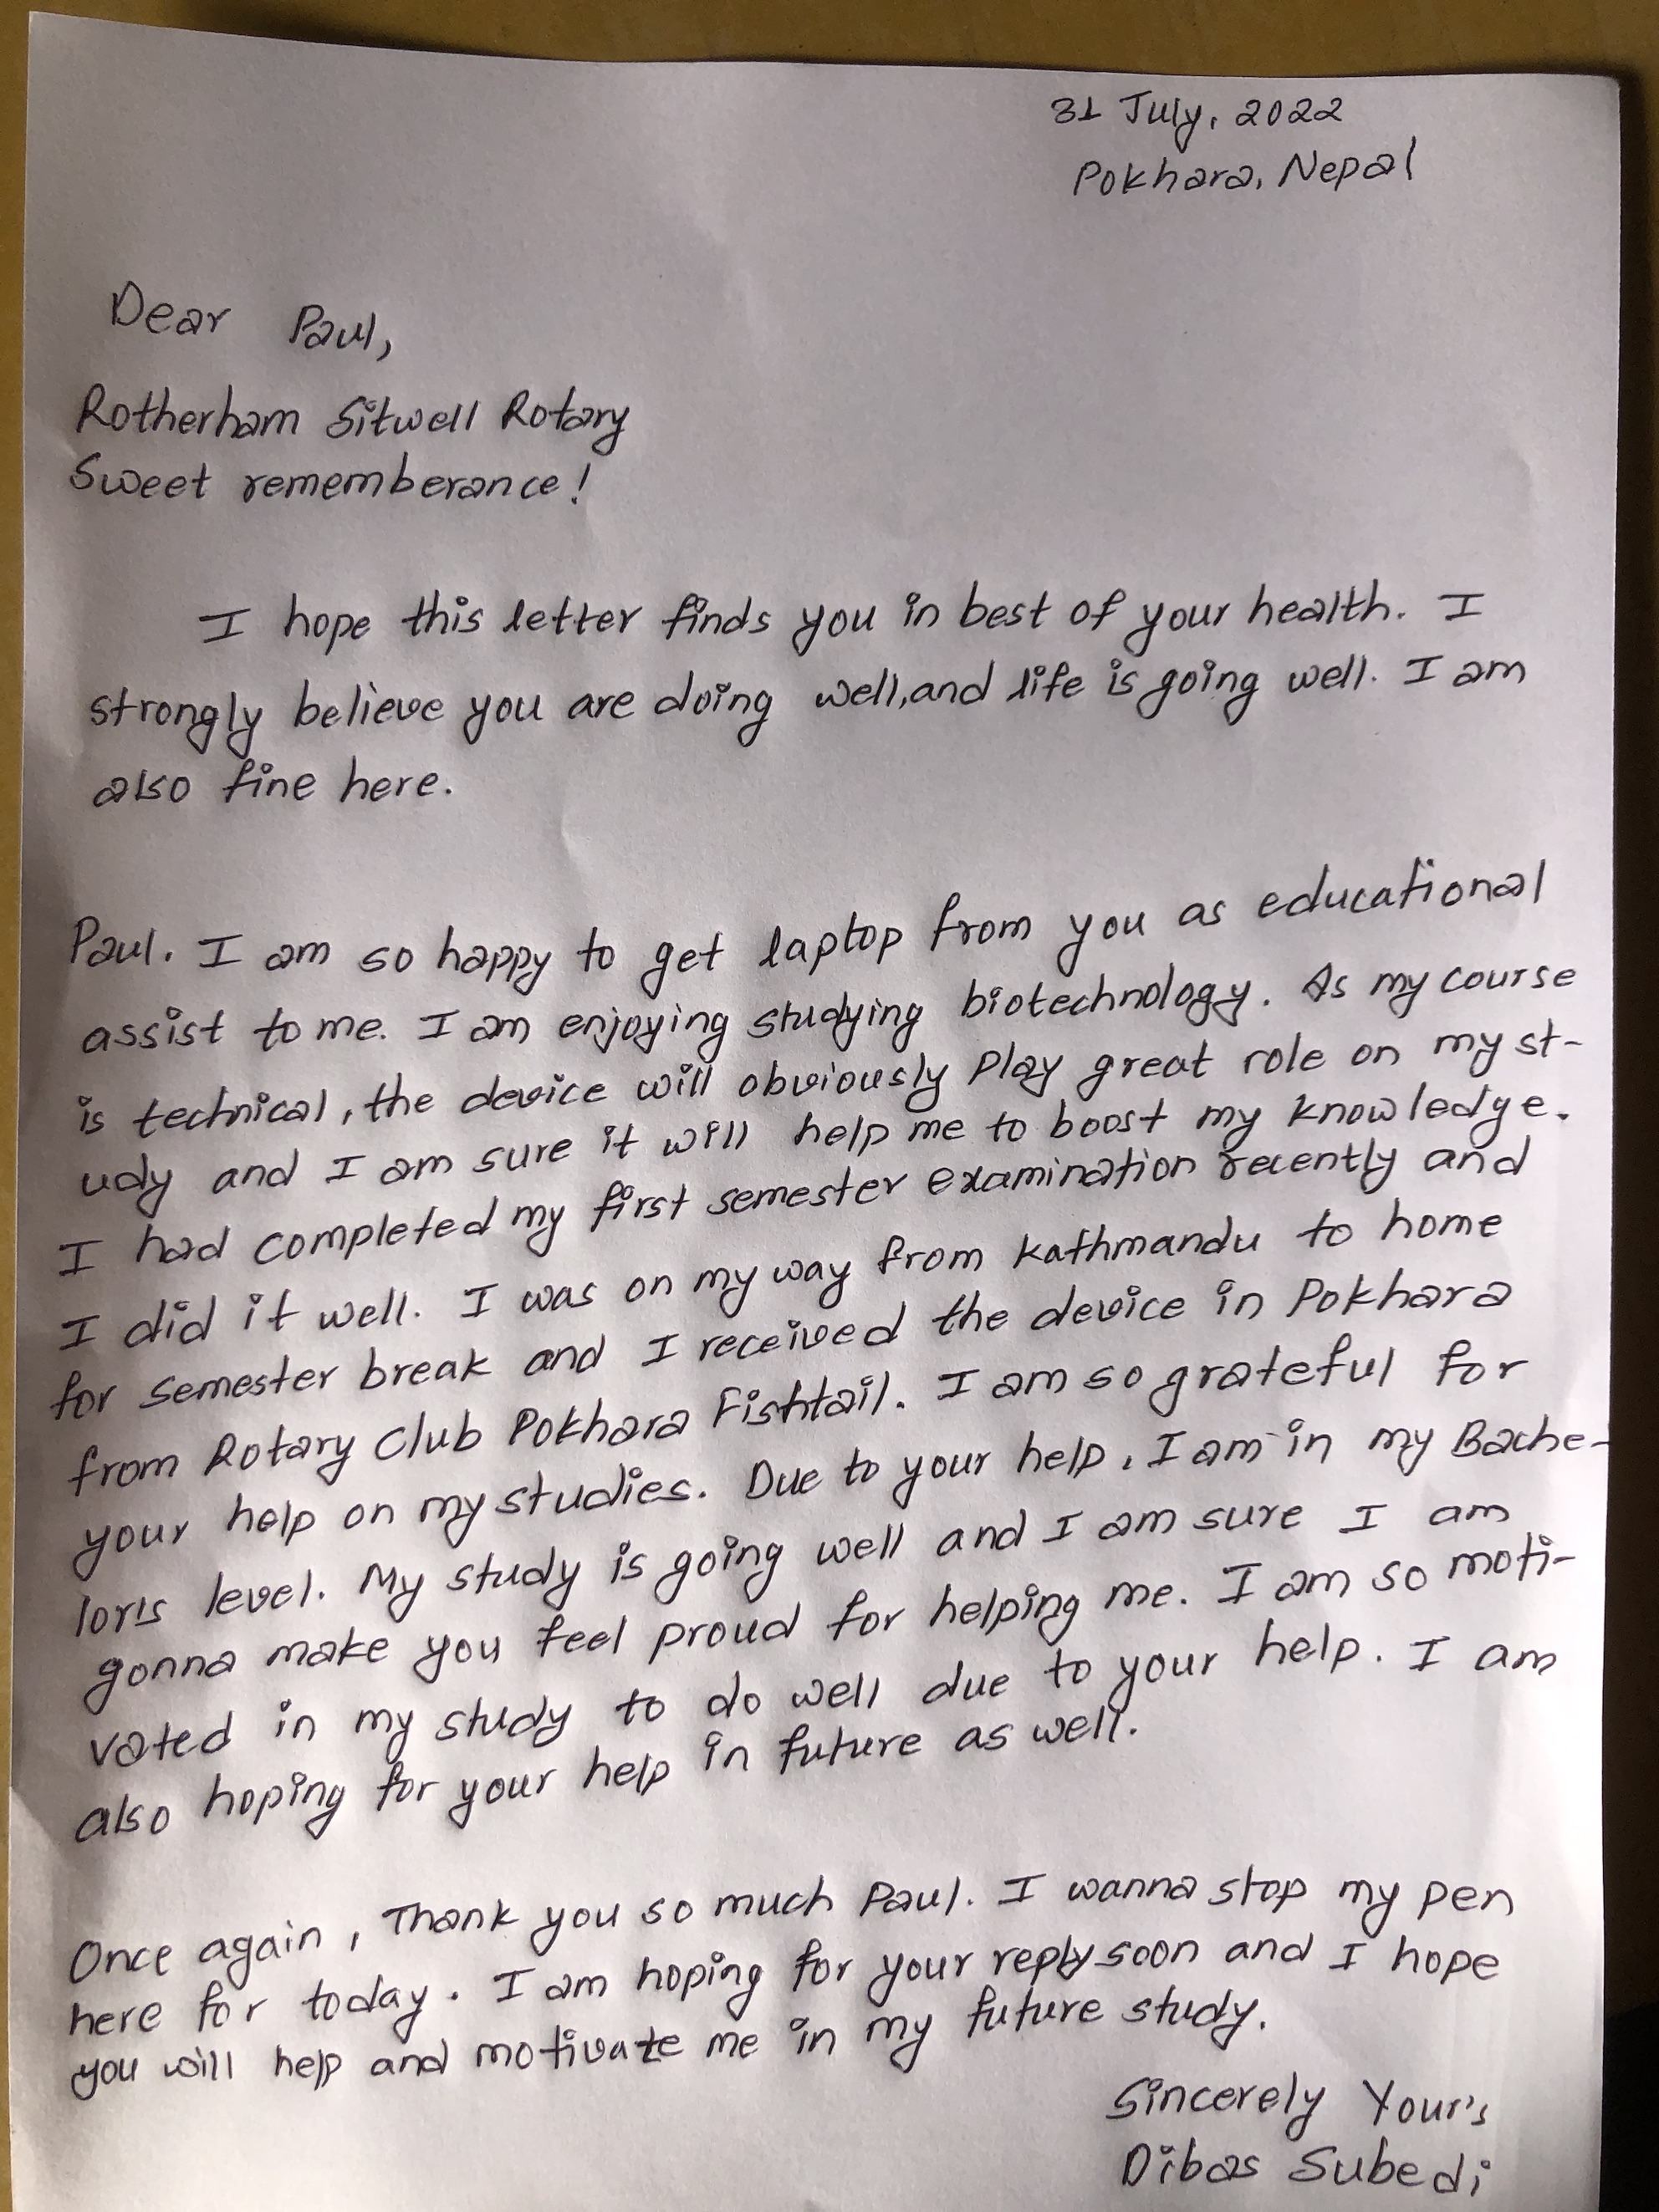 31 July, 2022
Pokhara, Nepal
Dear Paul,
Rotherham Sitwell Rotary
Sweet rememberance!
I hope this letter finds you in best of your health. I
strongly believe you are doing well, and life is going well. I am
also fine here.
Paul. I am so happy to get laptop from you as educational
assist to me. I am enjoying studying biotechnology. As my course
is technical, the device will obviously play great role on my st-
udy and I am sure it will help me to boost my knowledge.
I had completed my first semester examination recently and
I did it well. I was on my way from Kathmandu to home
for semester break and I received the device in Pokhara
from Rotary Club Pokhara Fishtail. I am so grateful for
your help on my studies. Due to your help, I am in my Bache-
lor's level. My study is going well and I am sure I am
gonna make you feel proud for helping me. I am so moti-
vated in my study to do well due to your help. I am
also hoping for your help in future as well.
Once again, Thank you so much Paul. I wanna stop my pen
here for today. I am hoping for your reply soon and I hope
you will help and motivate me in my future study.
Sincerely Your's
Dibas Subedi